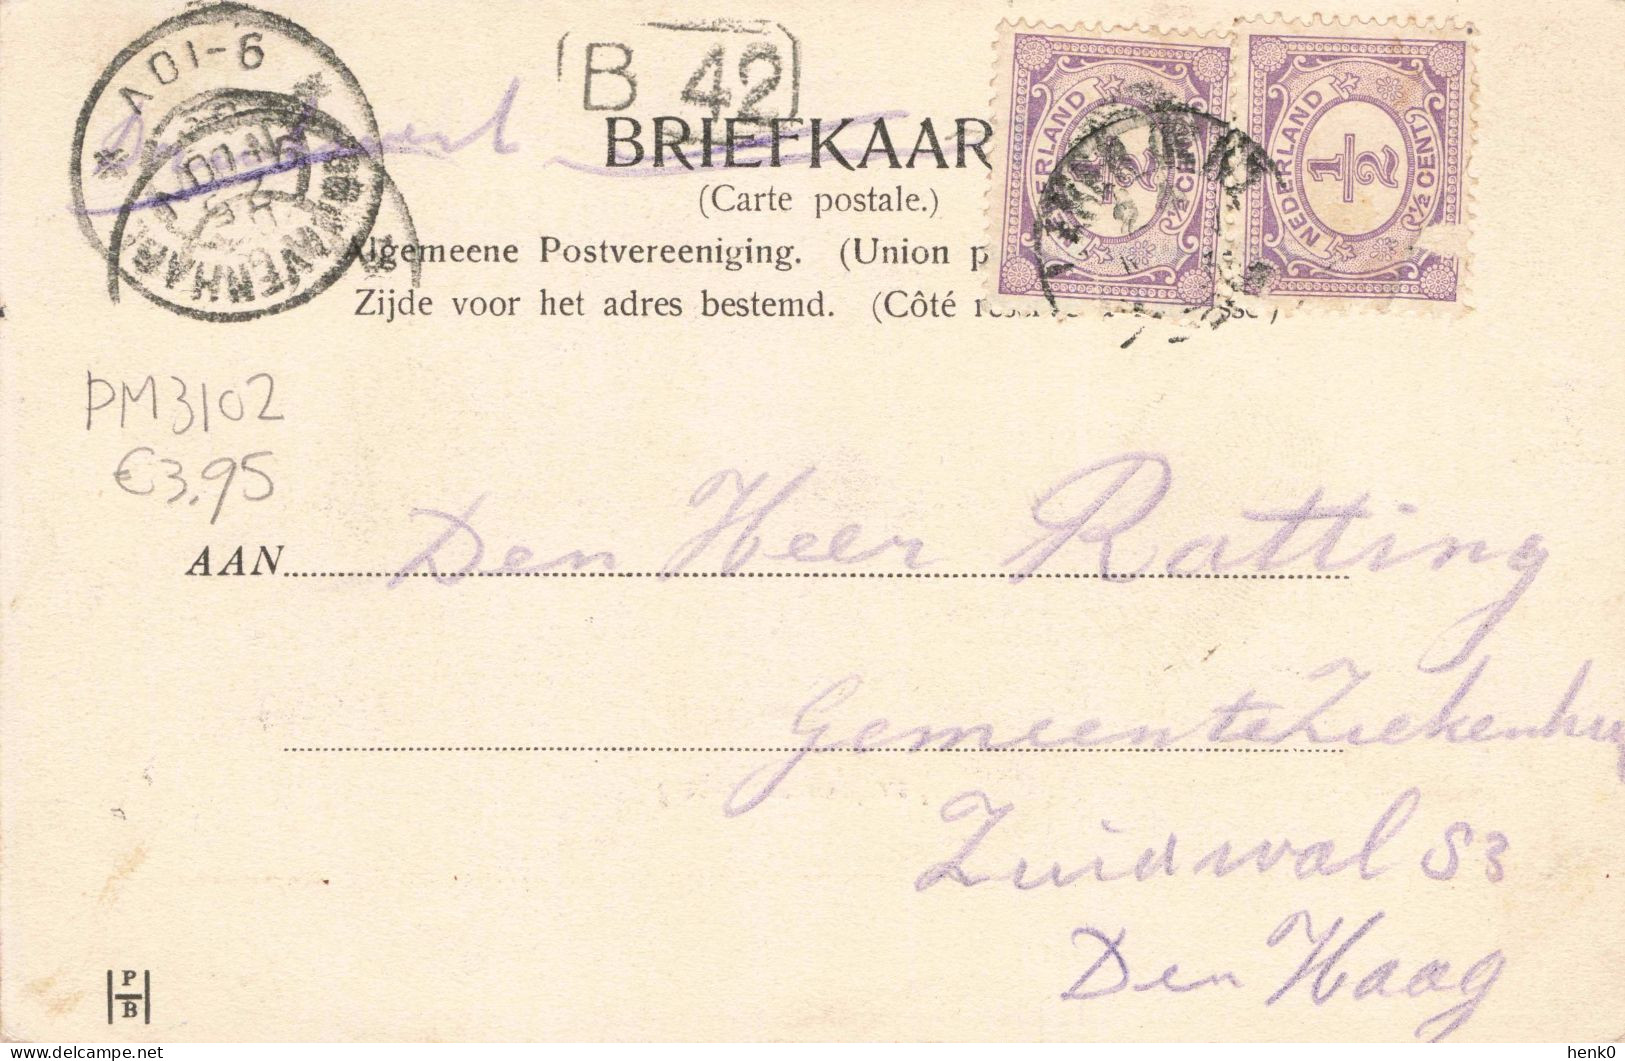 9-10V
B 42
BRIEFKAAR
(Carte postale.)
Algemeene Postvereeniging. (Union p
Zijde voor het adres bestemd. (Côté
NEDERLAND
1/2
½ CENT
NEDERLAND
1/2
½ CENT
PM3102
€3,95
AAN Den Heer Ratting
Gemeente Ziekenhu
Zuidwal 53
Den Haag
P
B
henk0